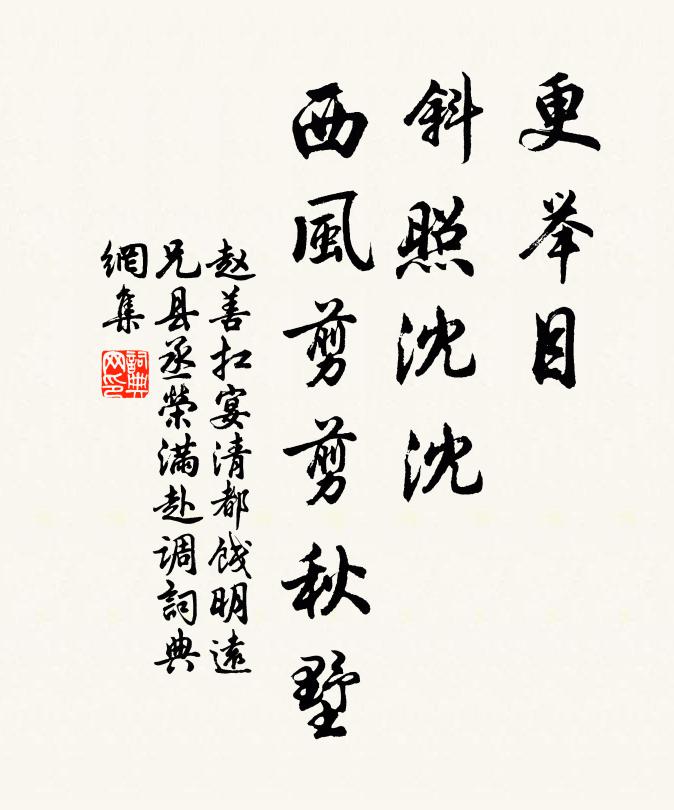 更举目
斜照沈沈
西風剪剪秋墅
赵善扛宴清都饯明遠
兄县丞榮满赴调詞典
網集
詞典
网印